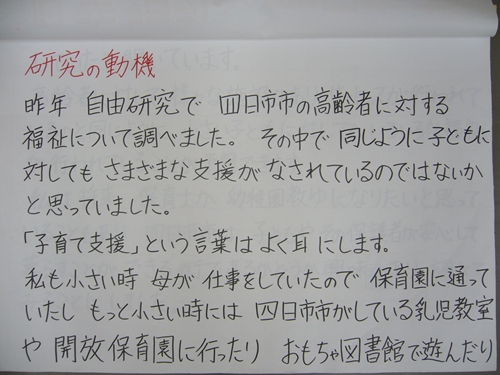 研究の動機
昨年 自由研究で 四日市市の高齢者に対する
福祉について調べました。 その中で 同じように子どもに
対しても さまざまな支援が なされているのではないか
と思っていました。
「子育て支援」という言葉は よく耳にします。
私も小さい時 母が 仕事をしていたので 保育園に通って
いたし もっと小さい時には 四日市市がしている乳児教室
や 開放保育園に行ったり おもちゃ図書館で遊んだり